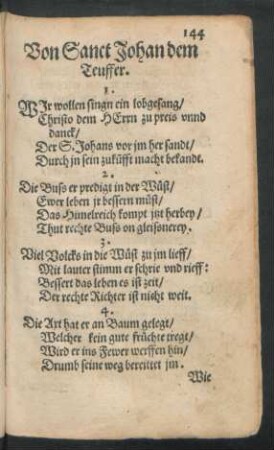 144
Von Sanct Johan dem
Teuffer.
1.
WJr wollen singn ein lobgesang/
Christo dem HErrn zu preis vnnd
danck/
Der S. Johans vor jm her sandt/
Durch jn sein zukũfft macht bekandt.
2.
Die Buſs er predigt in der Wüst/
Ewer leben jr bessern müst/
Das Himelreich kompt jtzt herbey/
Thut rechte Buſs on gleisnerey.
3.
Viel Volcks in die Wüst zu jm lieff/
Mit lauter stimm er schrie vnd rieff:
Bessert das leben es ist zeit/
Der rechte Richter ist nicht weit.
4.
Die Axt hat er an Baum gelegt/
Welcher kein gute früchte tregt/
Wird er ins Fewer werffen hin/
Drumb seine weg bereitet jm.
Wie